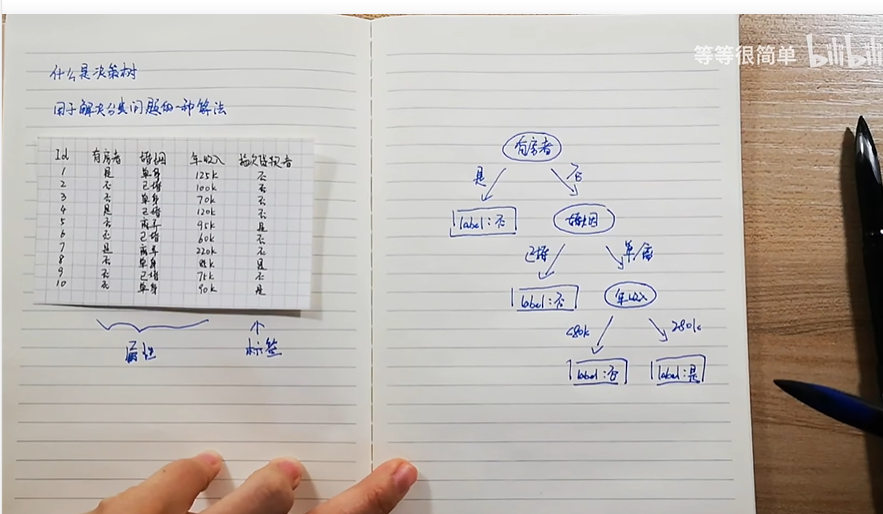 等等很简单 bilibili
什么是决策树
用于解决分类问题的一种算法
Id 有房者 婚姻 年收入 拖欠贷款者
1 是 单身 125k 否
2 否 已婚 100k 否
3 否 单身 70k 否
4 是 已婚 120k 否
5 否 离异 95k 是
6 否 已婚 60k 否
7 是 离异 220k 否
8 否 单身 85k 是
9 否 已婚 75k 否
10 否 单身 90k 是
属性 标签
有房者
是 否
label:否 婚姻
已婚 单/离
label:否 年收入
<80k ≥80k
label:否 label:是